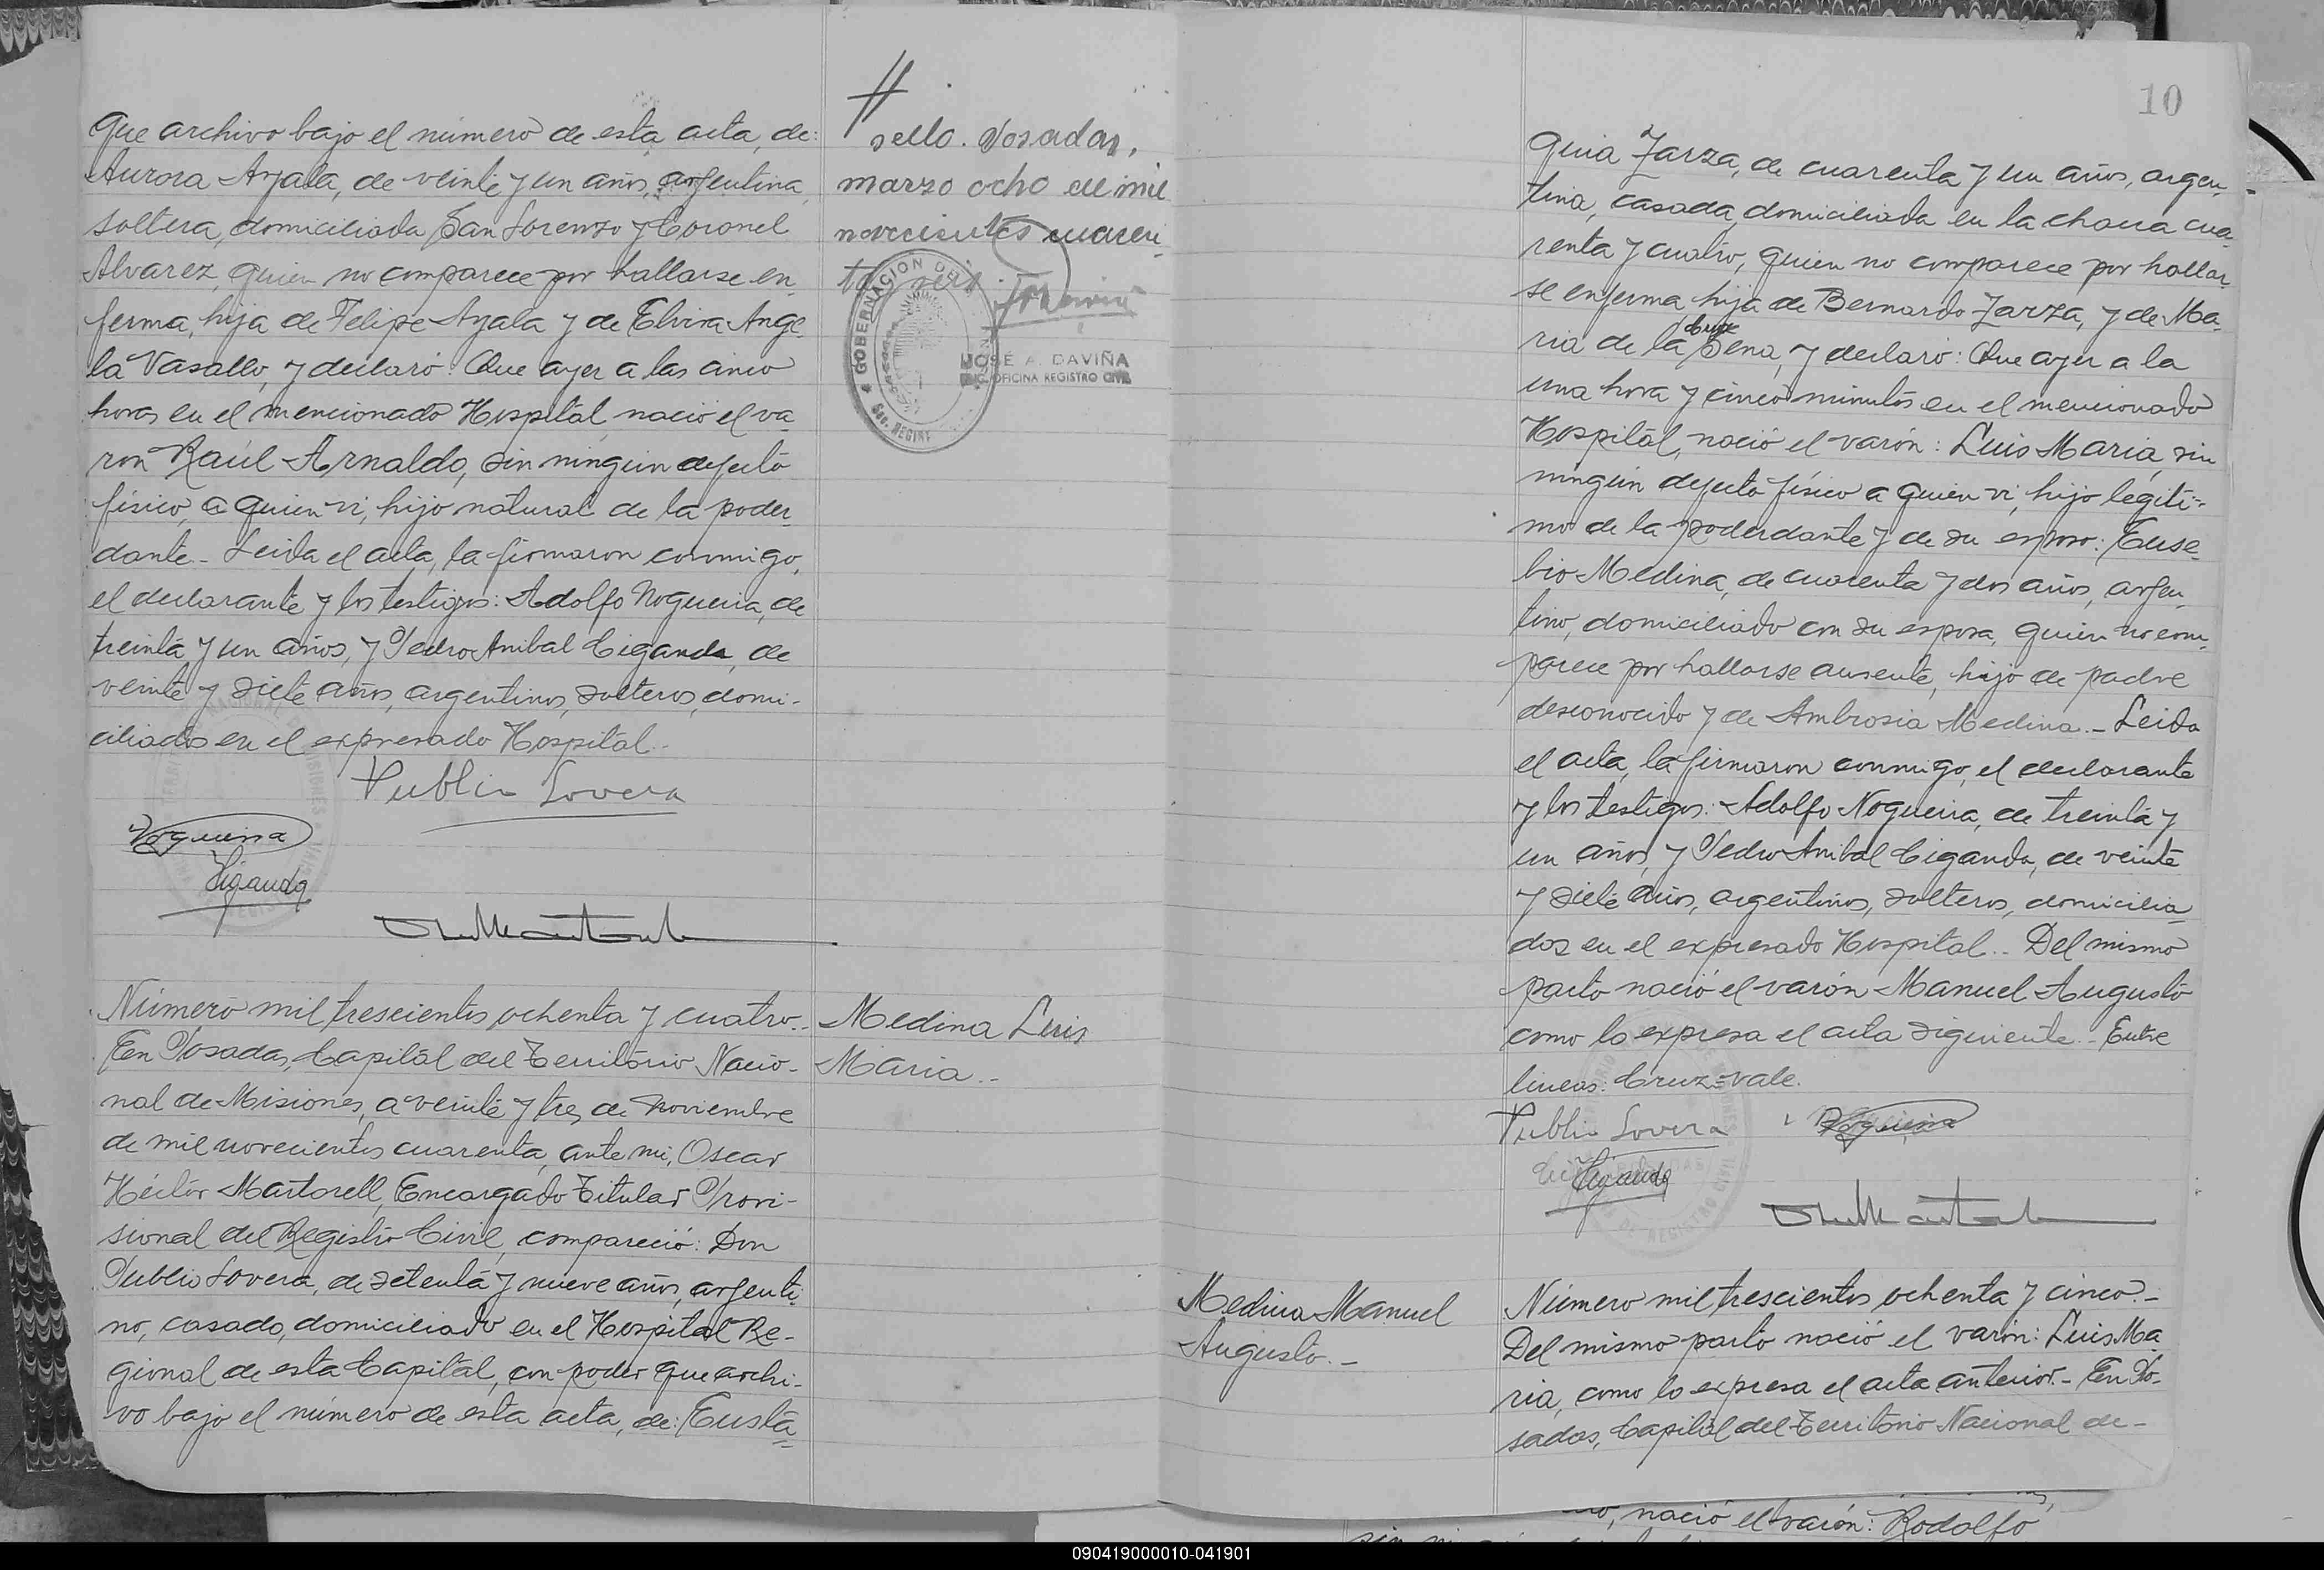 que archivo bajo el número de esta acta, de:
Aurora Ayala, de veinte y un años, argentina,
soltera, domiciliada San Lorenzo y Coronel
Alvarez, quien no comparece por hallarse en-
ferma, hija de Felipe Ayala y de Elvira Ange-
la Vasallo, y declaró: Que ayer a las cinco
horas en el mencionado Hospital nació el va-
rón Raúl Arnaldo, sin ningún defecto
físico, a quien vi, hijo natural de la poder-
dante.- Leida el acta, la firmaron conmigo,
el declarante y los testigos: Adolfo Nogueira, de
treinta y un años, y Pedro Anibal Ciganda, de
veinte y siete años, argentinos, solteros, domi-
ciliados en el expresado Hospital.-
Publio Lovera
Nogueira
Ciganda
Número mil trescientos ochenta y cuatro.-
En Posadas, Capital del Territorio Nacio-
nal de Misiones, a veinte y tres de noviembre
de mil novecientos cuarenta, ante mi, Oscar
Héctor Martorell, Encargado Titular Provi-
sional del Registro Civil, compareció: Don
Publio Lovera, de setenta y nueve años, argenti-
no, casado, domiciliado en el Hospital Re-
gional de esta Capital, con poder que archi-
vo bajo el número de esta acta, de: Eusta-
//
sello. Posadas,
marzo ocho de mil
novecientos cuaren-
ta y seis.
GOBERNACION DE
JOSÉ A. DAVIÑA
OFICINA REGISTRO CIVIL
Medina Luis
Maria.-
10
quia Zarza, de cuarenta y un años, argen-
tina, casada, domiciliada en la chacra cua-
renta y cuatro, quien no comparece por hallar-
se enferma, hija de Bernardo Zarza, y de Ma-
Cruz
ria de la Pena, y declaró: Que ayer a la
una hora y cinco minutos en el mencionado
Hospital, nació el varón: Luis Maria, sin
ningún defecto físico a quien vi, hijo legíti-
mo de la poderdante y de su esposo: Euse-
bio Medina, de cuarenta y dos años, argen-
tino, domiciliado con su esposa, quien no com-
parece por hallarse ausente, hijo de padre
desconocido y de Ambrosia Medina.- Leida
el acta, la firmaron conmigo, el declarante
y los testigos: Adolfo Nogueira, de treinta y
un años, y Pedro Anibal Ciganda, de veinte
y siete años, argentinos, solteros, domicilia-
dos en el expresado Hospital.- Del mismo
parto nació el varón Manuel Augusto
como lo expresa el acta siguiente.- Entre
lineas: Cruz=vale.
Publio Lovera
Nogueira
Ciganda
Medina Manuel
Augusto.-
Número mil trescientos ochenta y cinco.-
Del mismo parto nació el varón: Luis Ma-
ria, como lo expresa el acta anterior.- En Po-
sadas, Capital del Territorio Nacional de-
nació el varón: Rodolfo
090419000010-041901